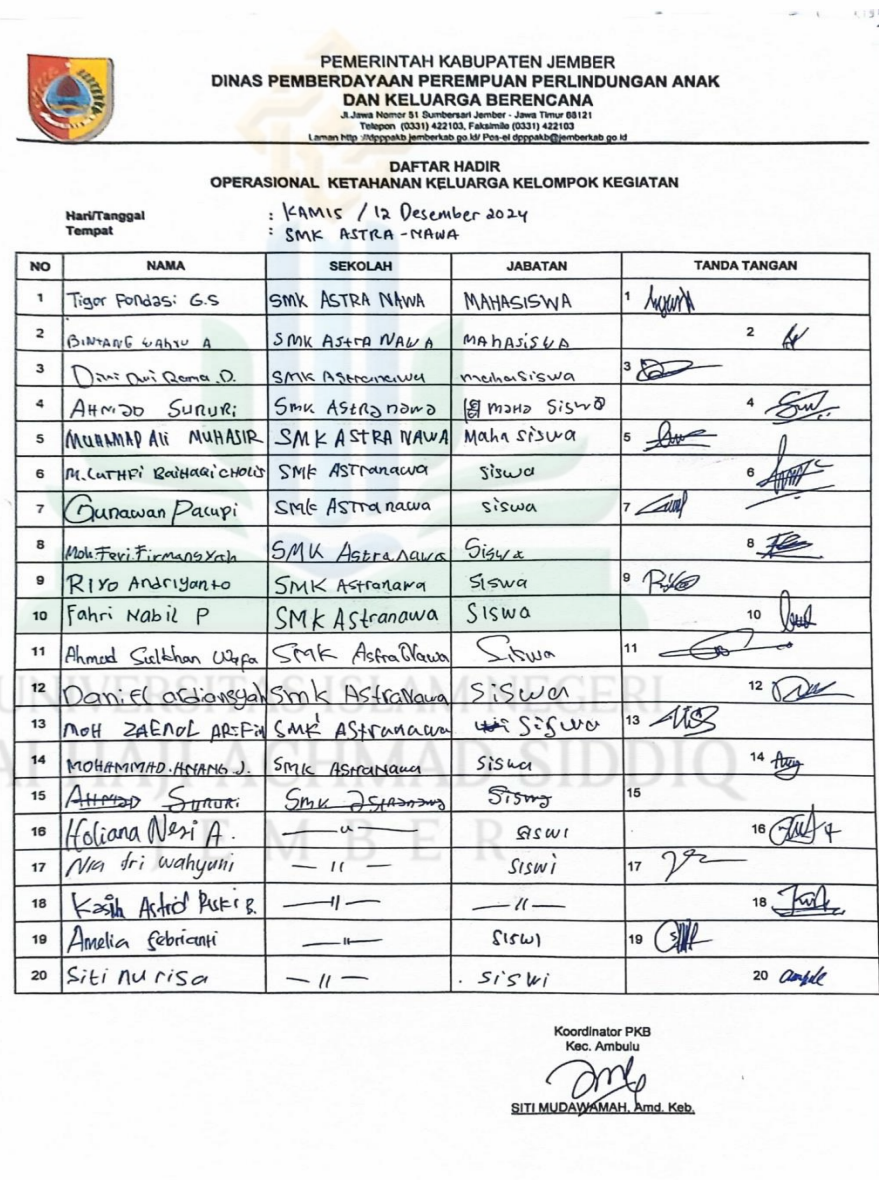 PEMERINTAH KABUPATEN JEMBER
DINAS PEMBERDAYAAN PEREMPUAN PERLINDUNGAN ANAK
DAN KELUARGA BERENCANA
Jl.Jawa Nomor 51 Sumbersari Jember - Jawa Timur 68121
Telepon (0331) 422103, Faksimile (0331) 422103
Laman http ://dpppakb.jemberkab.go.id/ Pos-el dpppakb@jemberkab.go.id
DAFTAR HADIR
OPERASIONAL KETAHANAN KELUARGA KELOMPOK KEGIATAN
Hari/Tanggal : KAMIS / 12 Desember 2024
Tempat : SMK ASTRA-NAWA
NO NAMA SEKOLAH JABATAN TANDA TANGAN
1 Tigor Fondasi G.S SMK ASTRA NAWA MAHASISWA 1
2 BINTANG WAHYU A SMK AStRA NAWA MAhASiSWA 2
3 Dwi Rama.D. SMK Astranawa mahasiswa 3
4 AHMAD SURURi Smk Astranawa maha Siswa 4
5 MUHAMAD Ali MUHASIR SMK ASTRA NAWA Maha siswa 5
6 M. LUTHFI BAIHAQI CHOLIS SMK ASTranawa siswa 6
7 Gunawan Pacupi SMK ASTranawa siswa 7
8 Moh.Feri.Firmansyah SMK AstraNawa Siswa 8
9 Riyo Andriyanto SMK Astranawa Siswa 9
10 Fahri Nabil P SMK Astranawa SIswa 10
11 Ahmad Sulkhan Wafa SMK AstraNawa Siswa 11
12 DaniEL ardiansyah Smk AstraNawa siswa 12
13 MOH ZAENOL AREFIN SMK AStranawa siswa 13
14 MOHAMMAD.ANANG J. SMK AStraNawa siswa 14
15 AHMAD SURURi Smk Astranawa Siswa 15
16 Holiana Nesi A. — ıı — siswi 16
17 Nia tri wahyuni — ıı — SISWi 17
18 Kasih Astrid Riski B. — ıı — — ıı — 18
19 Amelia febrianti — ıı — SISWI 19
20 Siti nurisa — ıı — siswi 20
UNIVERSITAS ISLAM NEGERI
AI HAJI ACHMAD SIDDIQ
JEMBER
Koordinator PKB
Kec. Ambulu
SITI MUDAWAMAH, Amd. Keb.